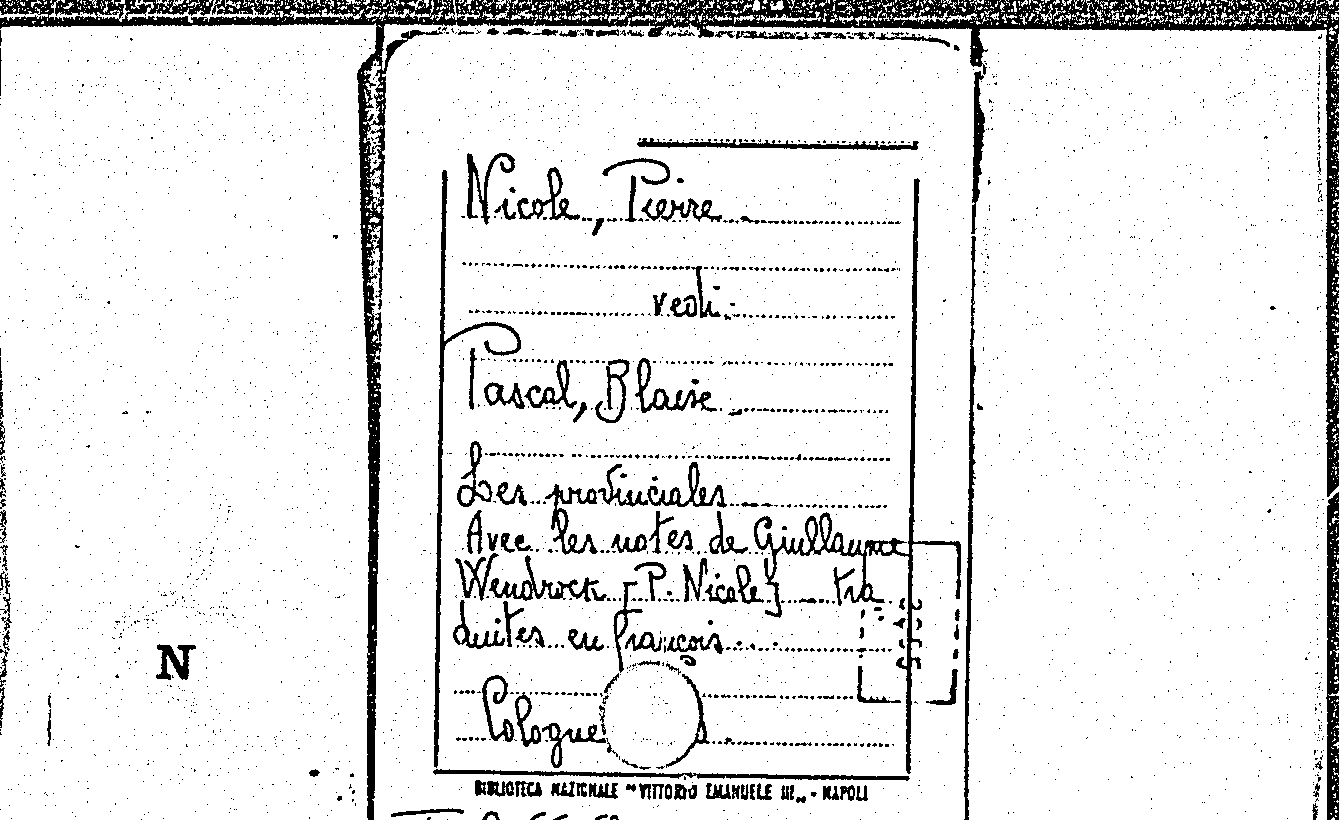 Nicole, Pierre
vedi:
Pascal, Blaise
Les provinciales
Avec les notes de Guillaume
Wendrock [P. Nicole] tra
duites en françois...
N
Cologne
BIBLIOTECA NAZIONALE "VITTORIO EMANUELE III„ - NAPOLI